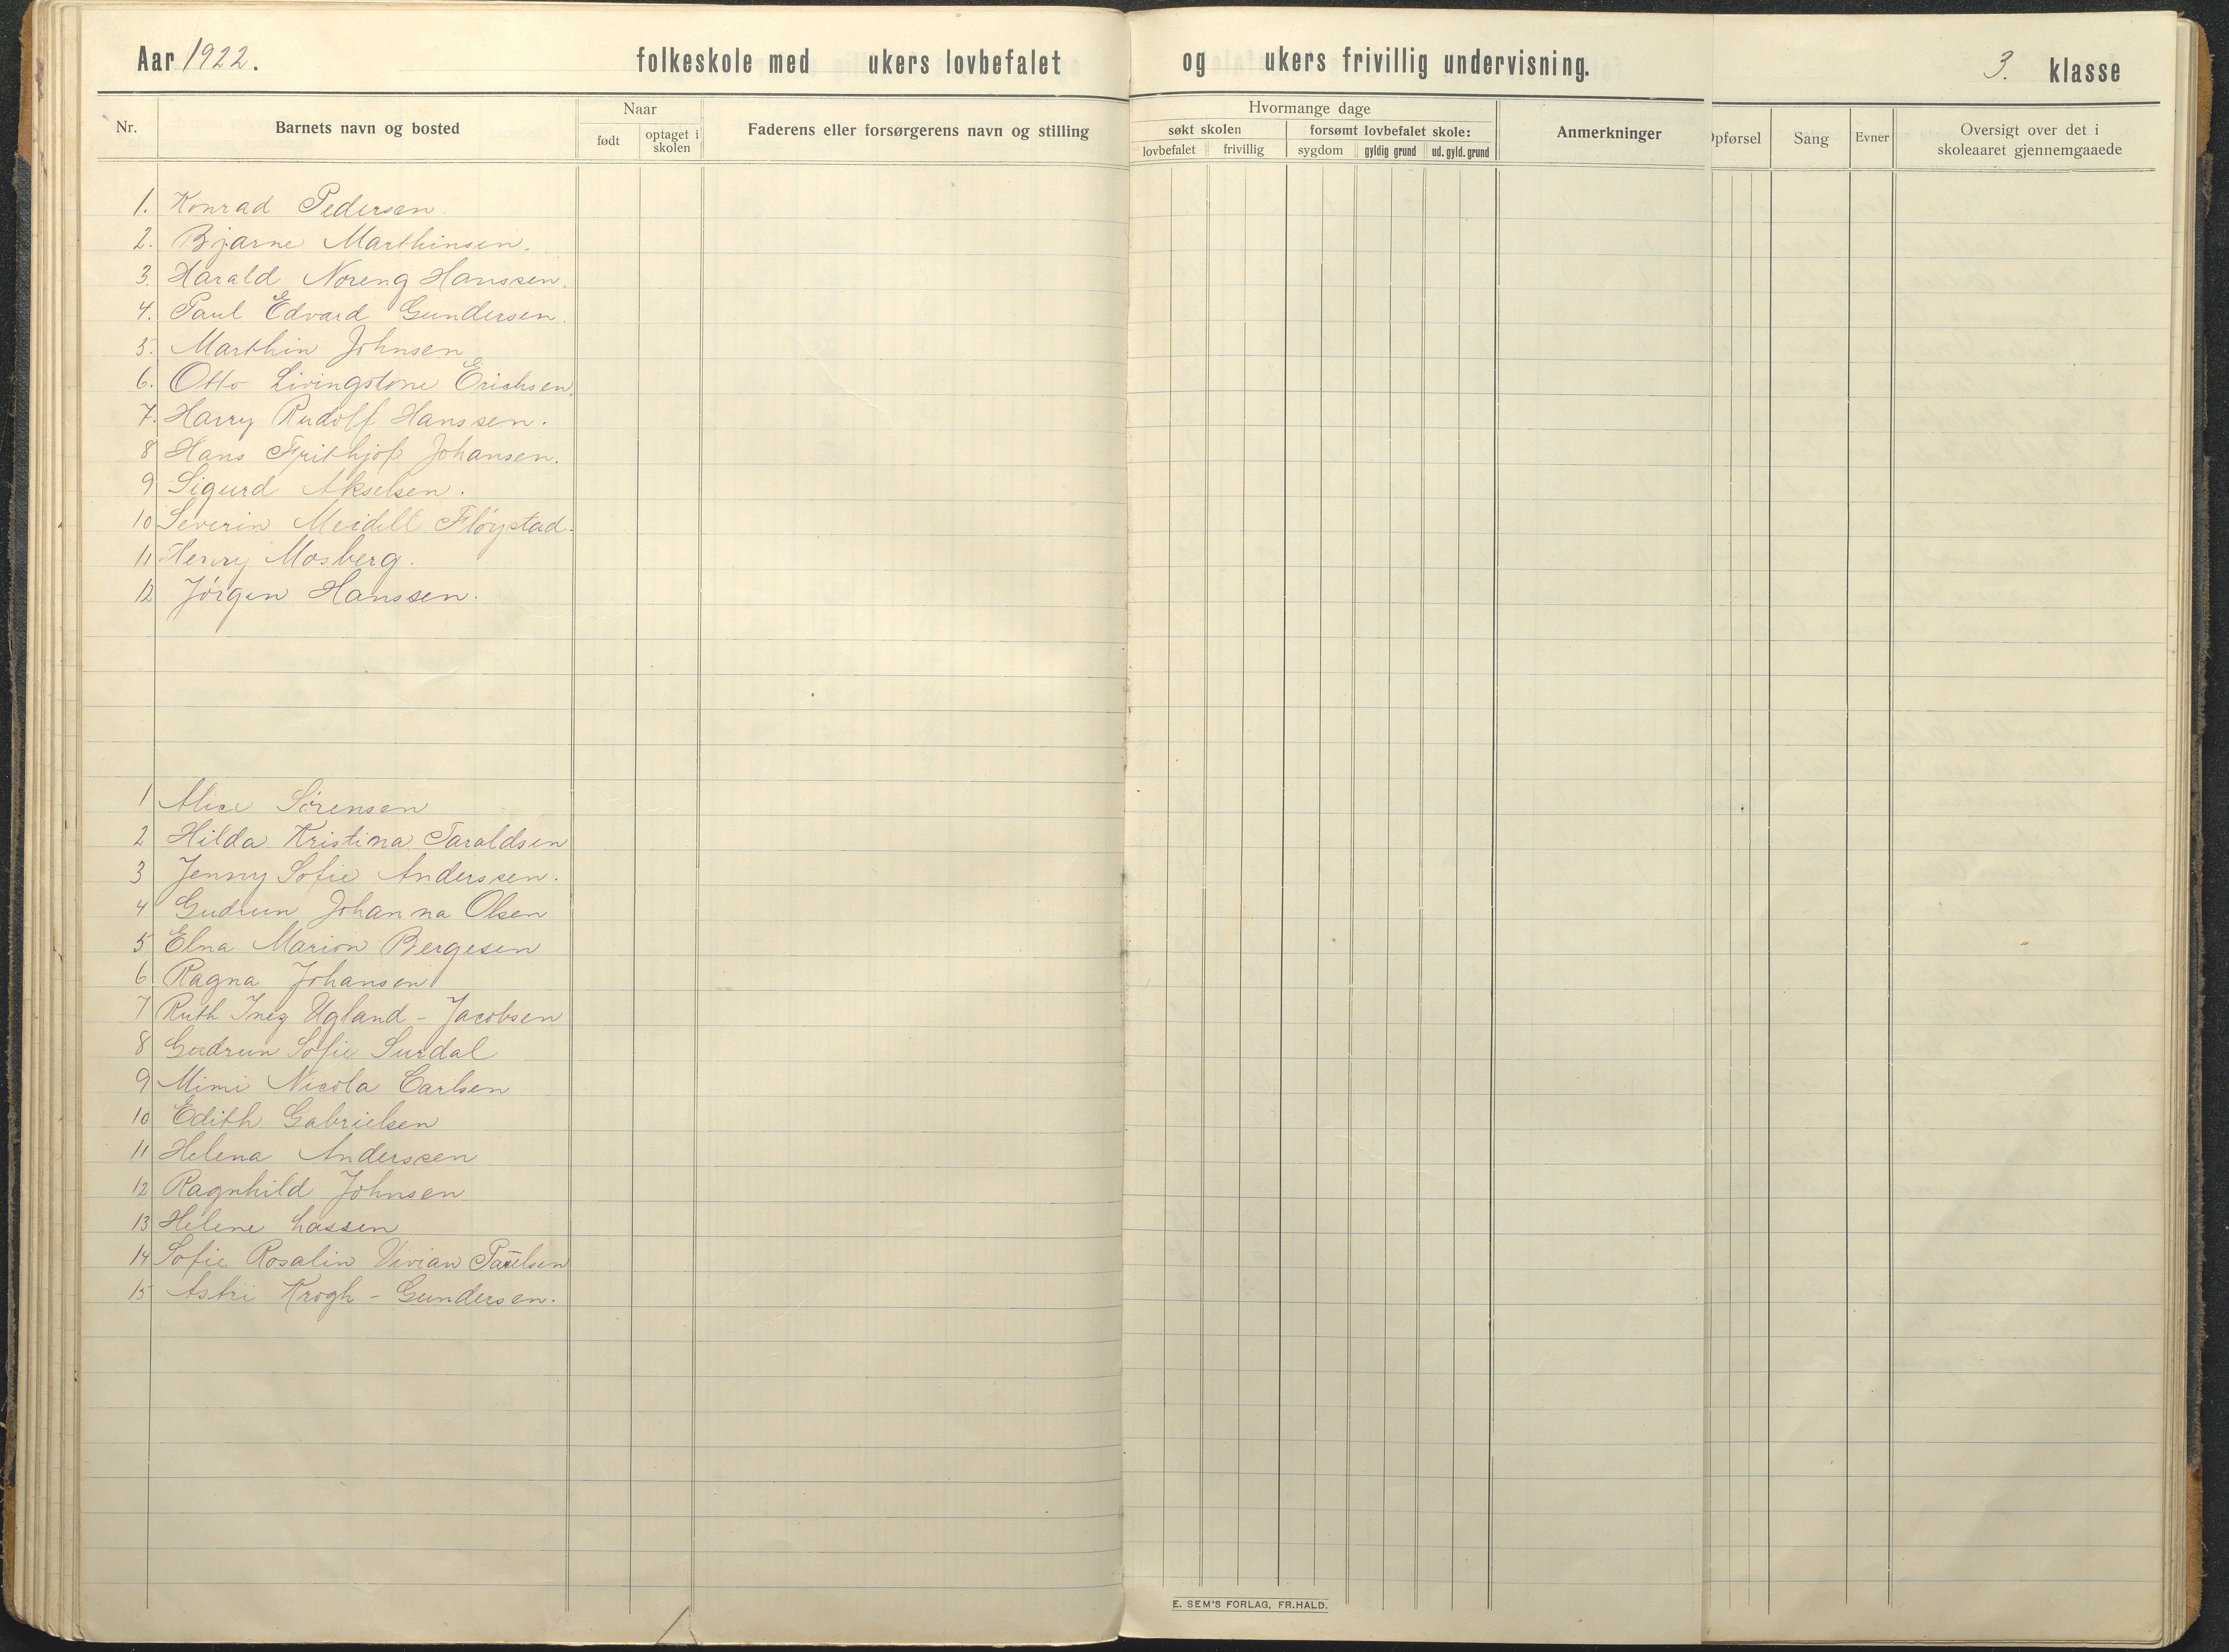 Aar 1922. folkeskole med ukers lovbefalet og ukers frivillig undervisning. 3. klasse
Nr. Barnets navn og bosted Naar født optaget i skolen Faderens eller forsørgerens navn og stilling
Hvormange dage
søkt skolen forsømt lovbefalet skole:
lovbefalet frivillig sygdom gyldig grund ud. gyld. grund
Anmerkninger
Opførsel Sang Evner Oversigt over det i skoleaaret gjennemgaaede
1. Konrad Pedersen.
2. Bjarne Marthinsen.
3. Harald Noreng Hanssen.
4. Paul Edvard Gundersen.
5. Marthin Johnsen
6. Otto Livingstone Erichsen.
7. Harry Rudolf Hanssen.
8 Hans Frithjof Johansen.
9 Sigurd Akselsen.
10 Severin Meidell Fløystad.
11 Henry Mosberg.
12 Jørgen Hanssen.
1 Alice Sørensen
2 Hilda Kristina Taraldsen
3 Jenny Sofie Anderssen.
4 Gudrun Johanna Olsen
5 Elna Marion Bergesen
6 Ragna Johansen
7 Ruth Inez Ugland - Jacobsen
8 Gudrun Sofie Surdal
9 Mimi Nicola Carlsen
10 Edith Gabrielsen
11 Helena Anderssen
12 Ragnhild Johnsen
13 Helene Lassen
14 Sofie Rosalin Vivian Paulsen
15 Astri Krogh - Gundersen.
E. SEM'S FORLAG, FR.HALD.